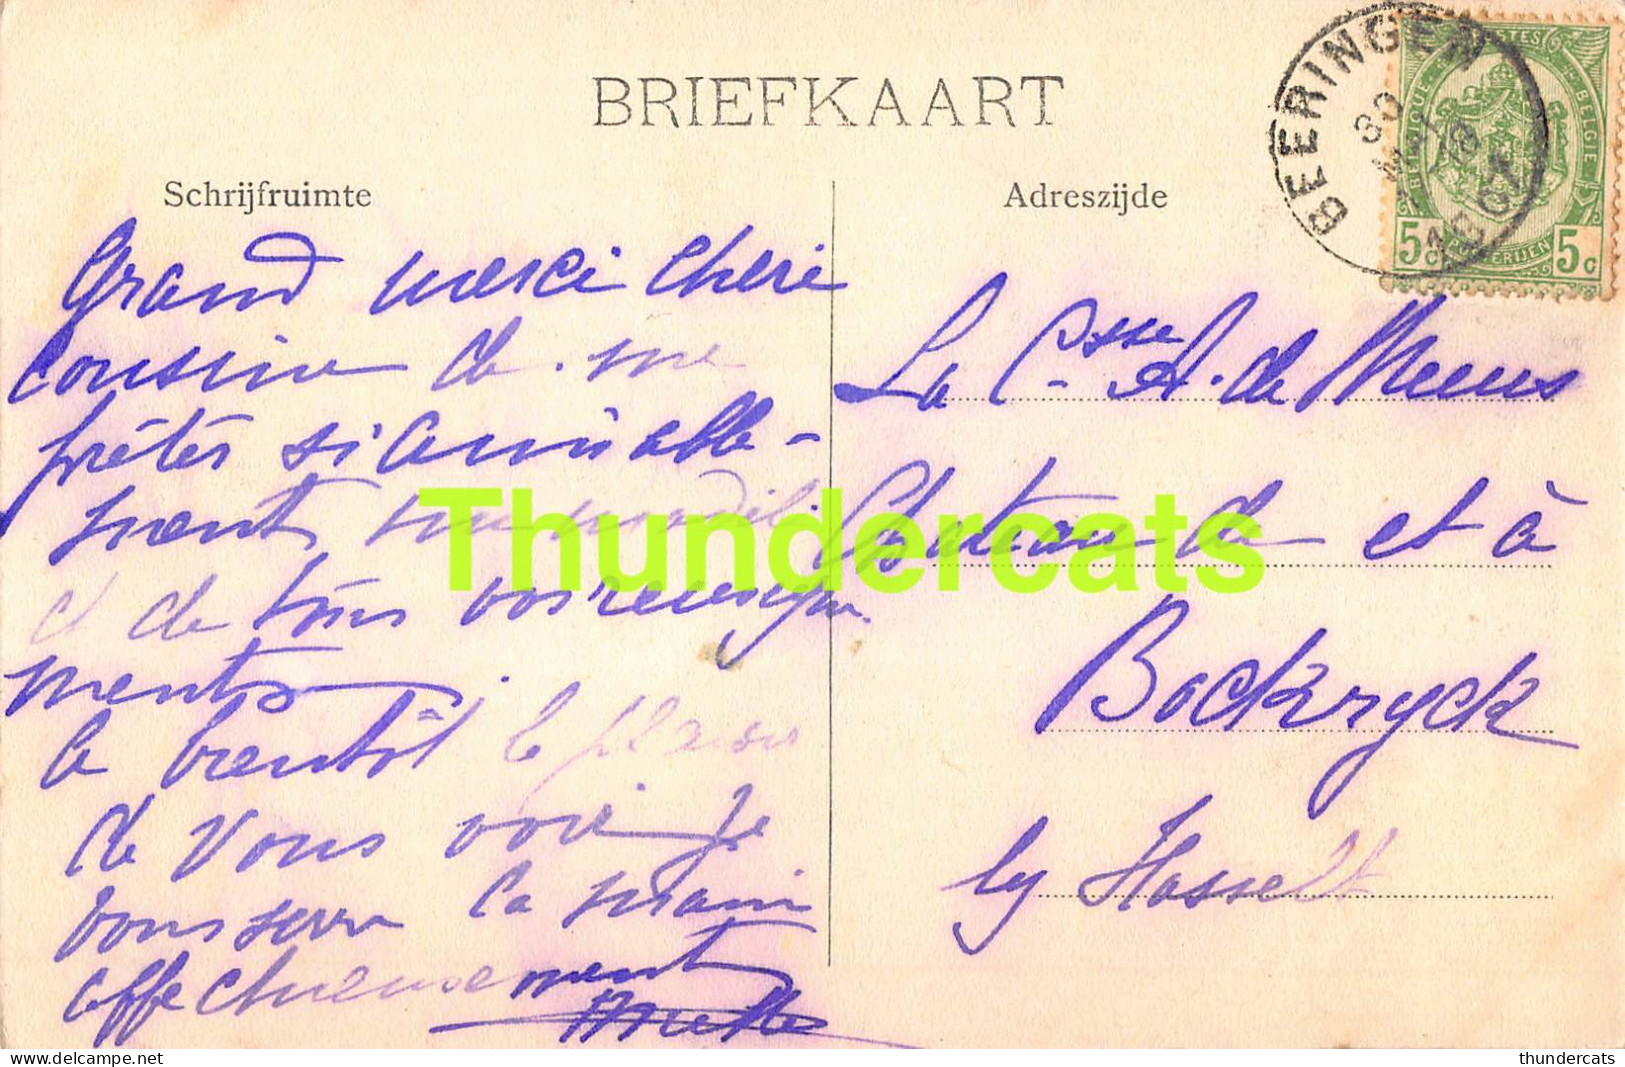 BRIEFKAART
Schrijfruimte
Adreszijde
BEERINGEN
30
POSTES
BELGIQUE
BELGIE
POSTERIJEN
5c 5c
Grand merci chère
cousine de me
prêter si aimable-
ment
et de tous vos renseigne
ments
a bientôt le plaisir
de vous voir Je
vous serre la main
affectueusement
La Csse A. de Meeus
Château de et à
Bockryck
by Hasselt
Thundercats
thundercats
delcampe.net